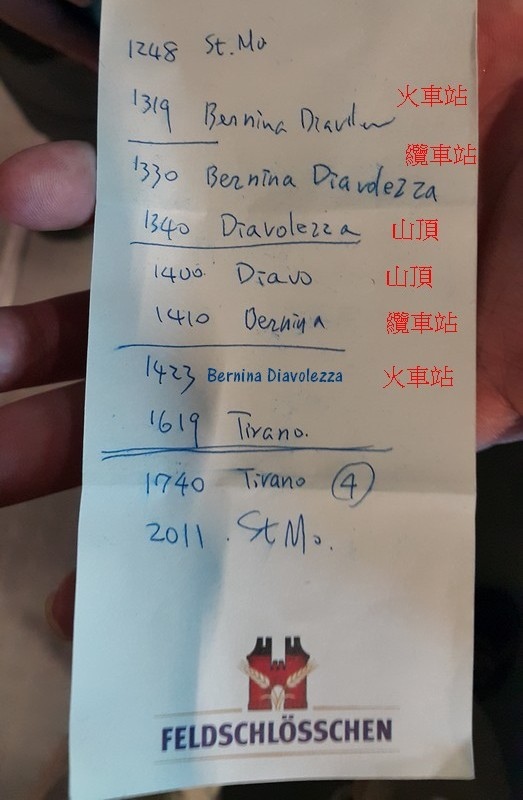 1248 St. Mo
1319 Bernina 火車站
1330 Bernina Diavolezza 纜車站
1340 Diavolezza 山頂
1400 Diavo 山頂
1410 Bernina 纜車站
1423 Bernina Diavolezza 火車站
1619 Tirano.
1740 Tirano ④
2011 . St Mo.
FELDSCHLÖSSCHEN